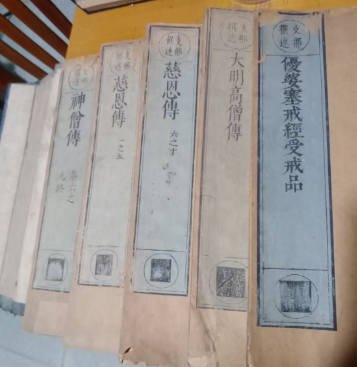 支那
撰述
優婆塞戒經受戒品
支那
撰述
大明高僧傳
支那
撰述
慈恩傳
六之十
支那
撰述
慈恩傳
一之五
神僧傳
卷六之
九終